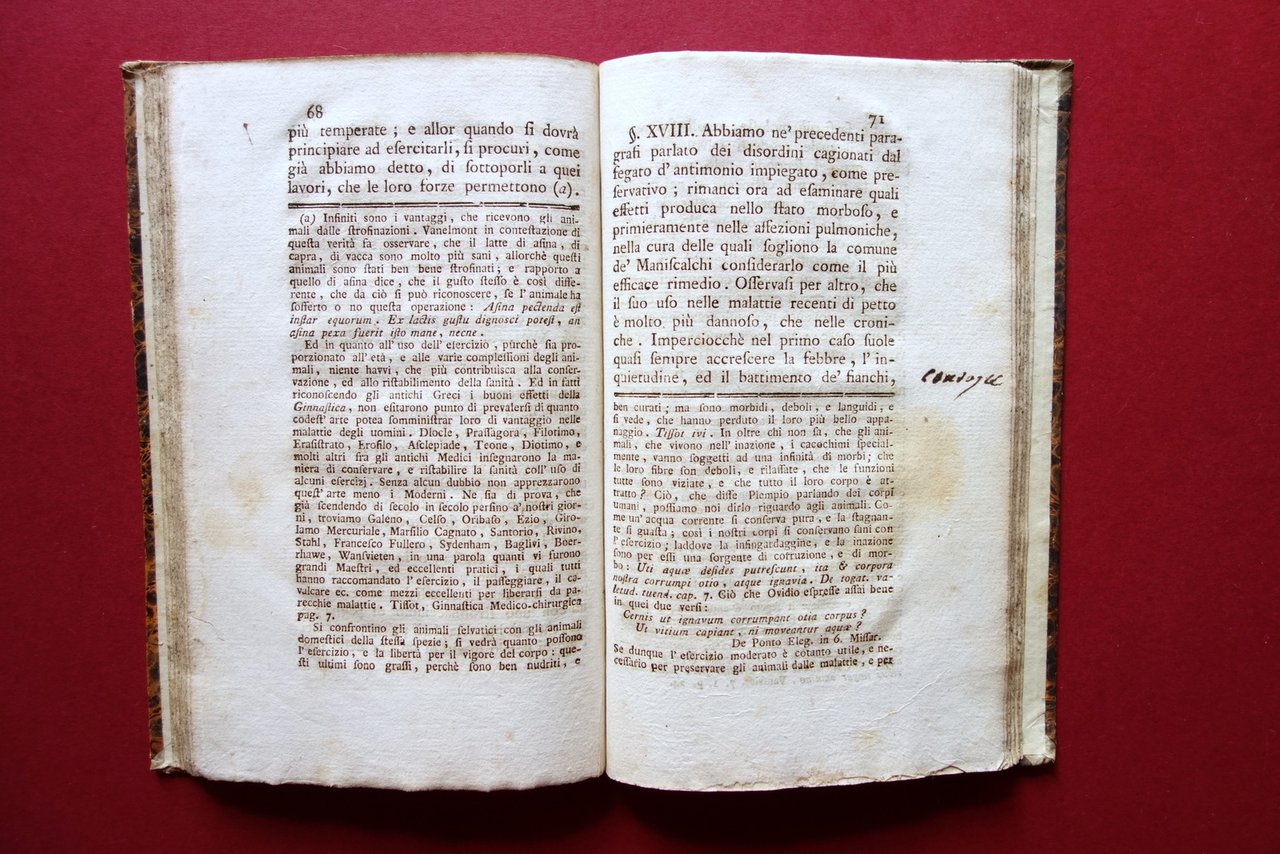 68
più temperate ; e allor quando ſi dovrà
principiare ad eſercitarli, ſi procuri, come
già abbiamo detto, di ſottoporli a quei
lavori, che le loro forze permettono (a).
(a) Infiniti ſono i vantaggi, che ricevono gli ani-
mali dalle ſtrofinazioni. Vanelmont in conteſtazione di
queſta verità fa oſſervare, che il latte di aſina, di
capra, di vacca sono molto più ſani, allorchè queſti
animali ſono ſtati ben bene ſtrofinati; e rapporto a
quello di aſina dice, che il guſto ſteſſo è così diffe-
rente, che da ciò ſi può riconoscere, ſe l'animale ha
ſofferto o no queſta operazione : Aſina pectenda eſt
inſtar equorum. Ex lactis guſtu dignoſci poteſt, an
aſina pexa fuerit iſto mane, necne.
Ed in quanto all'uso dell'eſercizio, purchè ſia pro-
porzionato all'età, e alle varie compleſſioni degli ani-
mali, niente havvi, che più contribuisca alla conſer-
vazione, ed allo riſtabilimento della ſanità. Ed in fatti
riconoſcendo gli antichi Greci i buoni effetti della
Ginnaſtica, non eſitarono punto di prevalerſi di quanto
codeſt'arte potea ſomminiſtrar loro di vantaggio nelle
malattie degli uomini. Diocle, Praſſagora, Filotimo,
Eraſiſtrato, Erofilo, Aſclepiade, Teone, Diotimo, e
molti altri fra gli antichi Medici inſegnarono la ma-
niera di conſervare, e riſtabilire la ſanità coll'uſo di
alcuni eſercizj. Senza alcun dubbio non apprezzarono
queſt'arte meno i Moderni. Ne ſia di prova, che
già ſcendendo di ſecolo in ſecolo perſino a'noſtri gior-
ni, troviamo Galeno, Celſo, Oribaſo, Ezio, Giro-
lamo Mercuriale, Marſilio Cagnato, Santorio, Rivino,
Stahl, Franceſco Fullero, Sydenham, Baglivi, Boer-
rhawe, Wanſvieten; in una parola quanti vi furono
grandi Maeſtri, ed eccellenti pratici, i quali tutti
hanno raccomandato l'eſercizio, il paſſeggiare, il ca-
valcare ec. come mezzi eccellenti per liberarſi da pa-
recchie malattie. Tiſſot, Ginnaſtica Medico-chirurgica
pag. 7.
Si confrontino gli animali ſelvatici con gli animali
domeſtici della ſteſſa ſpezie; ſi vedrà quanto poſſono
l'eſercizio, e la libertà per il vigore del corpo: que-
ſti ultimi ſono graſſi, perchè ſono ben nudriti, e
71
§. XVIII. Abbiamo ne'precedenti para-
grafi parlato dei disordini cagionati dal
fegato d'antimonio impiegato, come pre-
ſervativo ; rimanci ora ad eſaminare quali
effetti produca nello ſtato morboſo, e
primieramente nelle affezioni pulmoniche,
nella cura delle quali ſogliono la comune
de' Maniſcalchi conſiderarlo come il più
efficace rimedio. Oſſervaſi per altro, che
il ſuo uſo nelle malattie recenti di petto
è molto più dannoſo, che nelle croni-
che. Imperciocchè nel primo caſo ſuole
quaſi ſempre accreſcere la febbre, l'in-
quietudine, ed il battimento de' fianchi,
ben curati; ma ſono morbidi, deboli, e languidi, e
ſi vede, che hanno perduto il loro più bello appa-
naggio. Tiſſot ivi. In oltre chi non ſa, che gli ani-
mali, che vivono nell'inazione, i cacochimi ſpecial-
mente, vanno ſoggetti ad una infinità di morbi; che
le loro fibre ſon deboli, e rilaſſate, che le funzioni
tutte ſono viziate, e che tutto il loro corpo è at-
tratto? Ciò, che diſſe Plempio parlando dei corpi
umani, poſſiamo noi dirlo riguardo agli animali. Co-
me un'acqua corrente ſi conſerva pura, e la ſtagnan-
te ſi guaſta; così i noſtri corpi ſi conſervano ſani con
l'eſercizio; laddove la infingardaggine, e la inazione
ſono per eſſi una ſorgente di corruzione, e di mor-
bo: Uti aquæ deſides putreſcunt, ita & corpora
noſtra corrumpi otio, atque ignavia. De togat. va-
letud. tuend. cap. 7. Ciò che Ovidio eſpreſſe aſſai bene
in quei due verſi:
Cernis ut ignavum corrumpant otia corpus?
Ut vitium capiant, ni moveantur aquæ?
De Ponto Eleg. in 6. Miſſar.
Se dunque l'eſercizio moderato è cotanto utile, e ne-
ceſſario per preſervare gli animali dalle malattie, e per